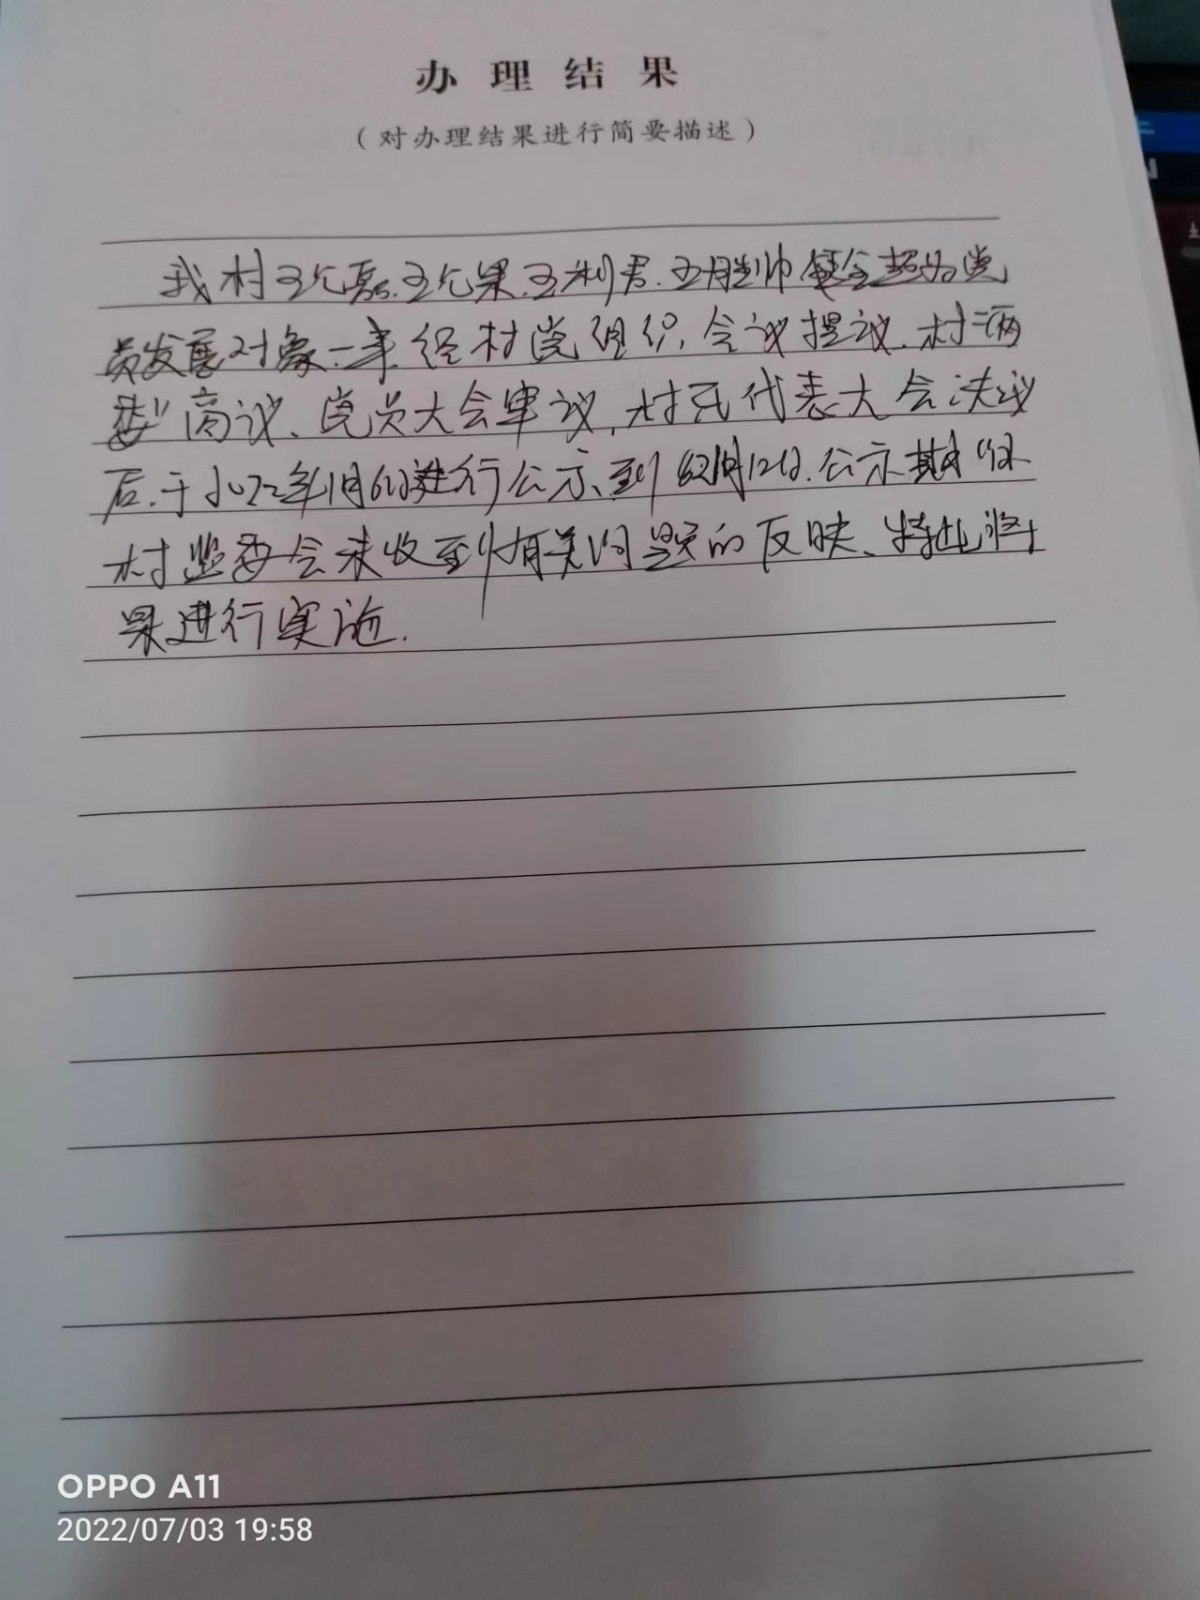 办理结果
（对办理结果进行简要描述）
我村王允磊、王允果、王利君、王胜帅 为党
员发展对象一事经村党组织会议提议、村"两
委"商议、党员大会审议、村民代表大会决议
后、于2022年1月6日进行公示、到 1月12日、公示期
村监委会未收到有关问题的反映、特此将
果进行实施.
OPPO A11
2022/07/03 19:58